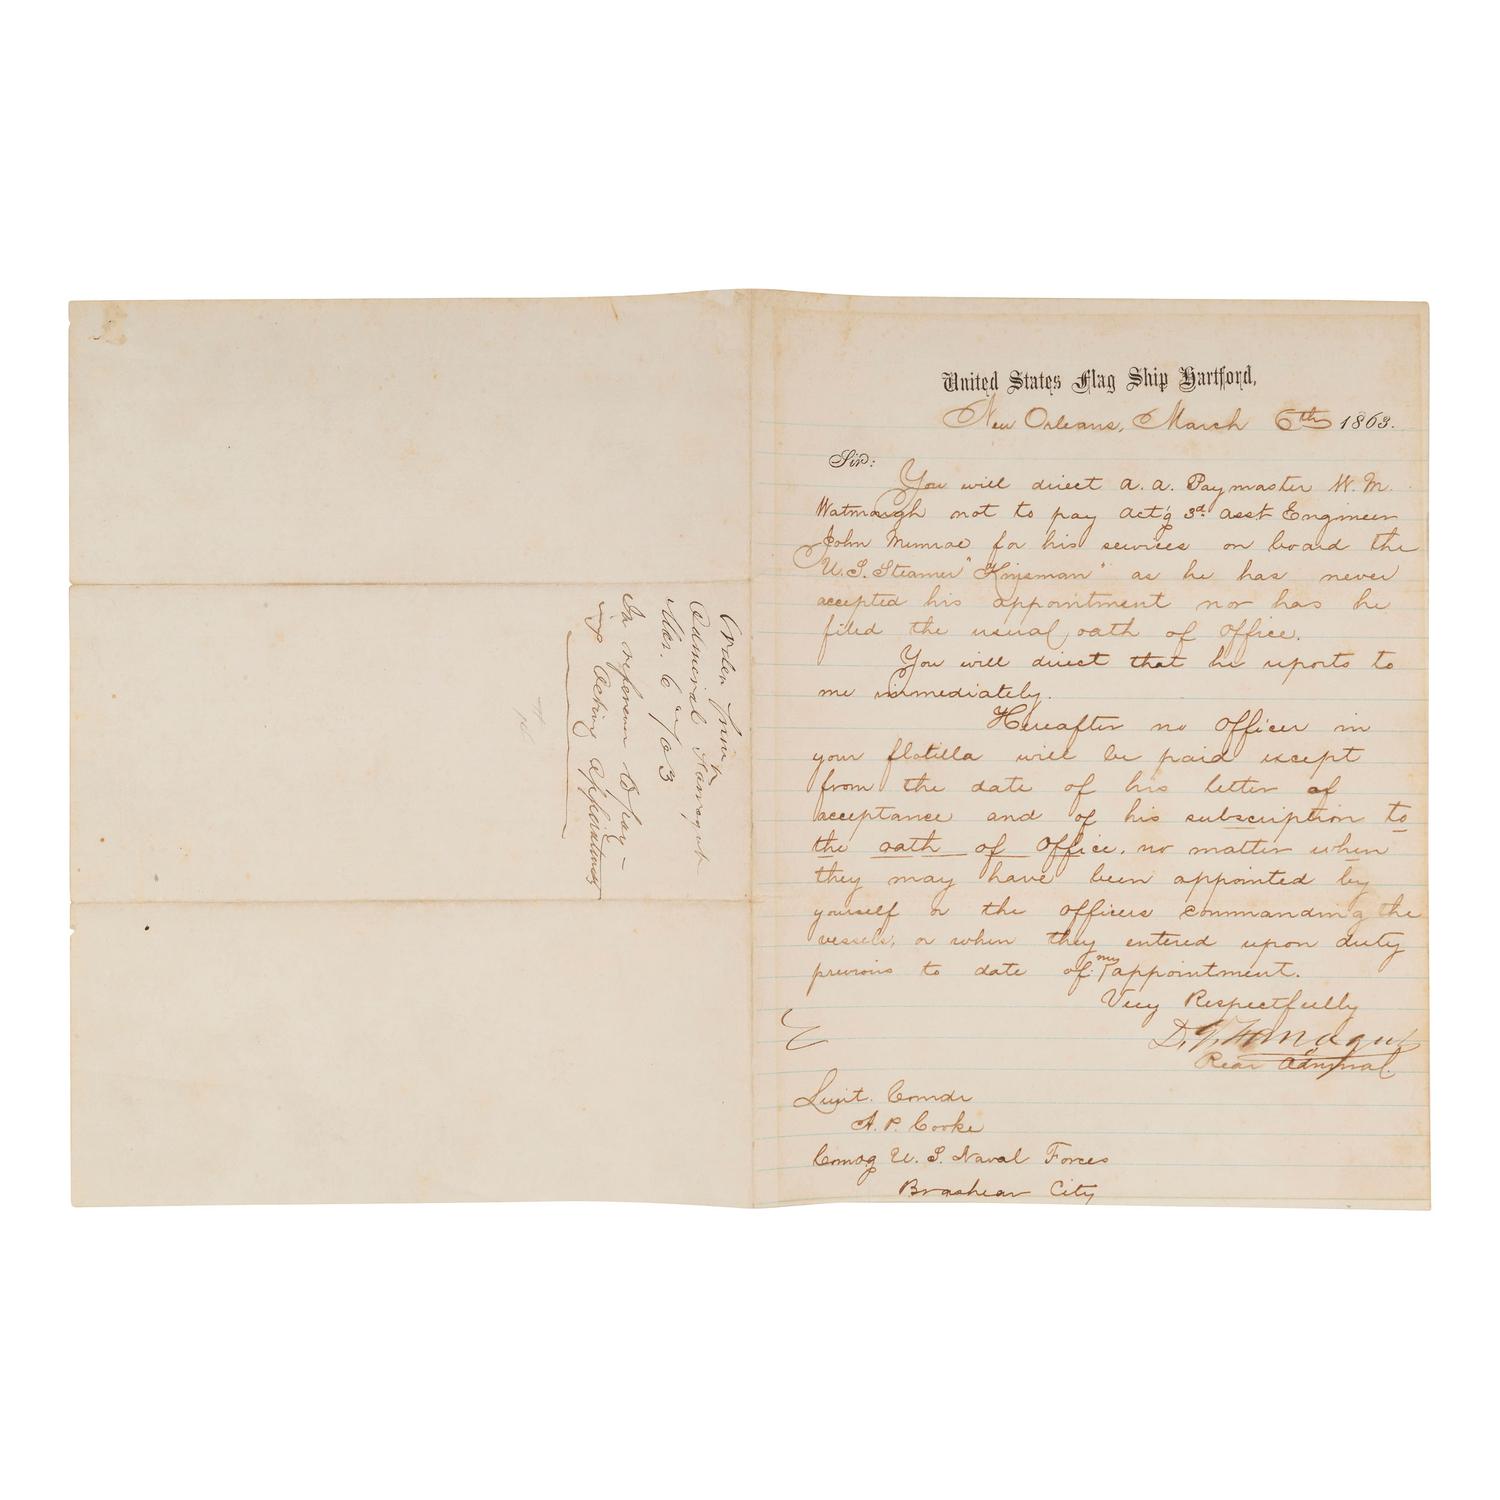 United States Flag Ship Hartford,
New Orleans, March 6th 1863.
Sir:
You will direct A. A. Paymaster W. M.
Watmough not to pay Act'g 3d Asst Engineer
John Munroe for his services on board the
U. S. Steamer "Kinsman" as he has never
accepted his appointment nor has he
filed the usual oath of office.
You will direct that he reports to
me immediately.
Hereafter no Officer in
your flotilla will be paid except
from the date of his letter of
acceptance and of his subscription to
the oath of Office, no matter when
they may have been appointed by
yourself or the officers commanding the
vessels, or when they entered upon duty
previous to date of my appointment.
Very Respectfully
D. G. Farragut
Rear Admiral.
Lieut. Comdr
A. P. Cooke
Comdg U. S. Naval Forces
Brashear City
Order from
Admiral Farragut
Mar. 6
In reference to pay-
ing Acting appointments